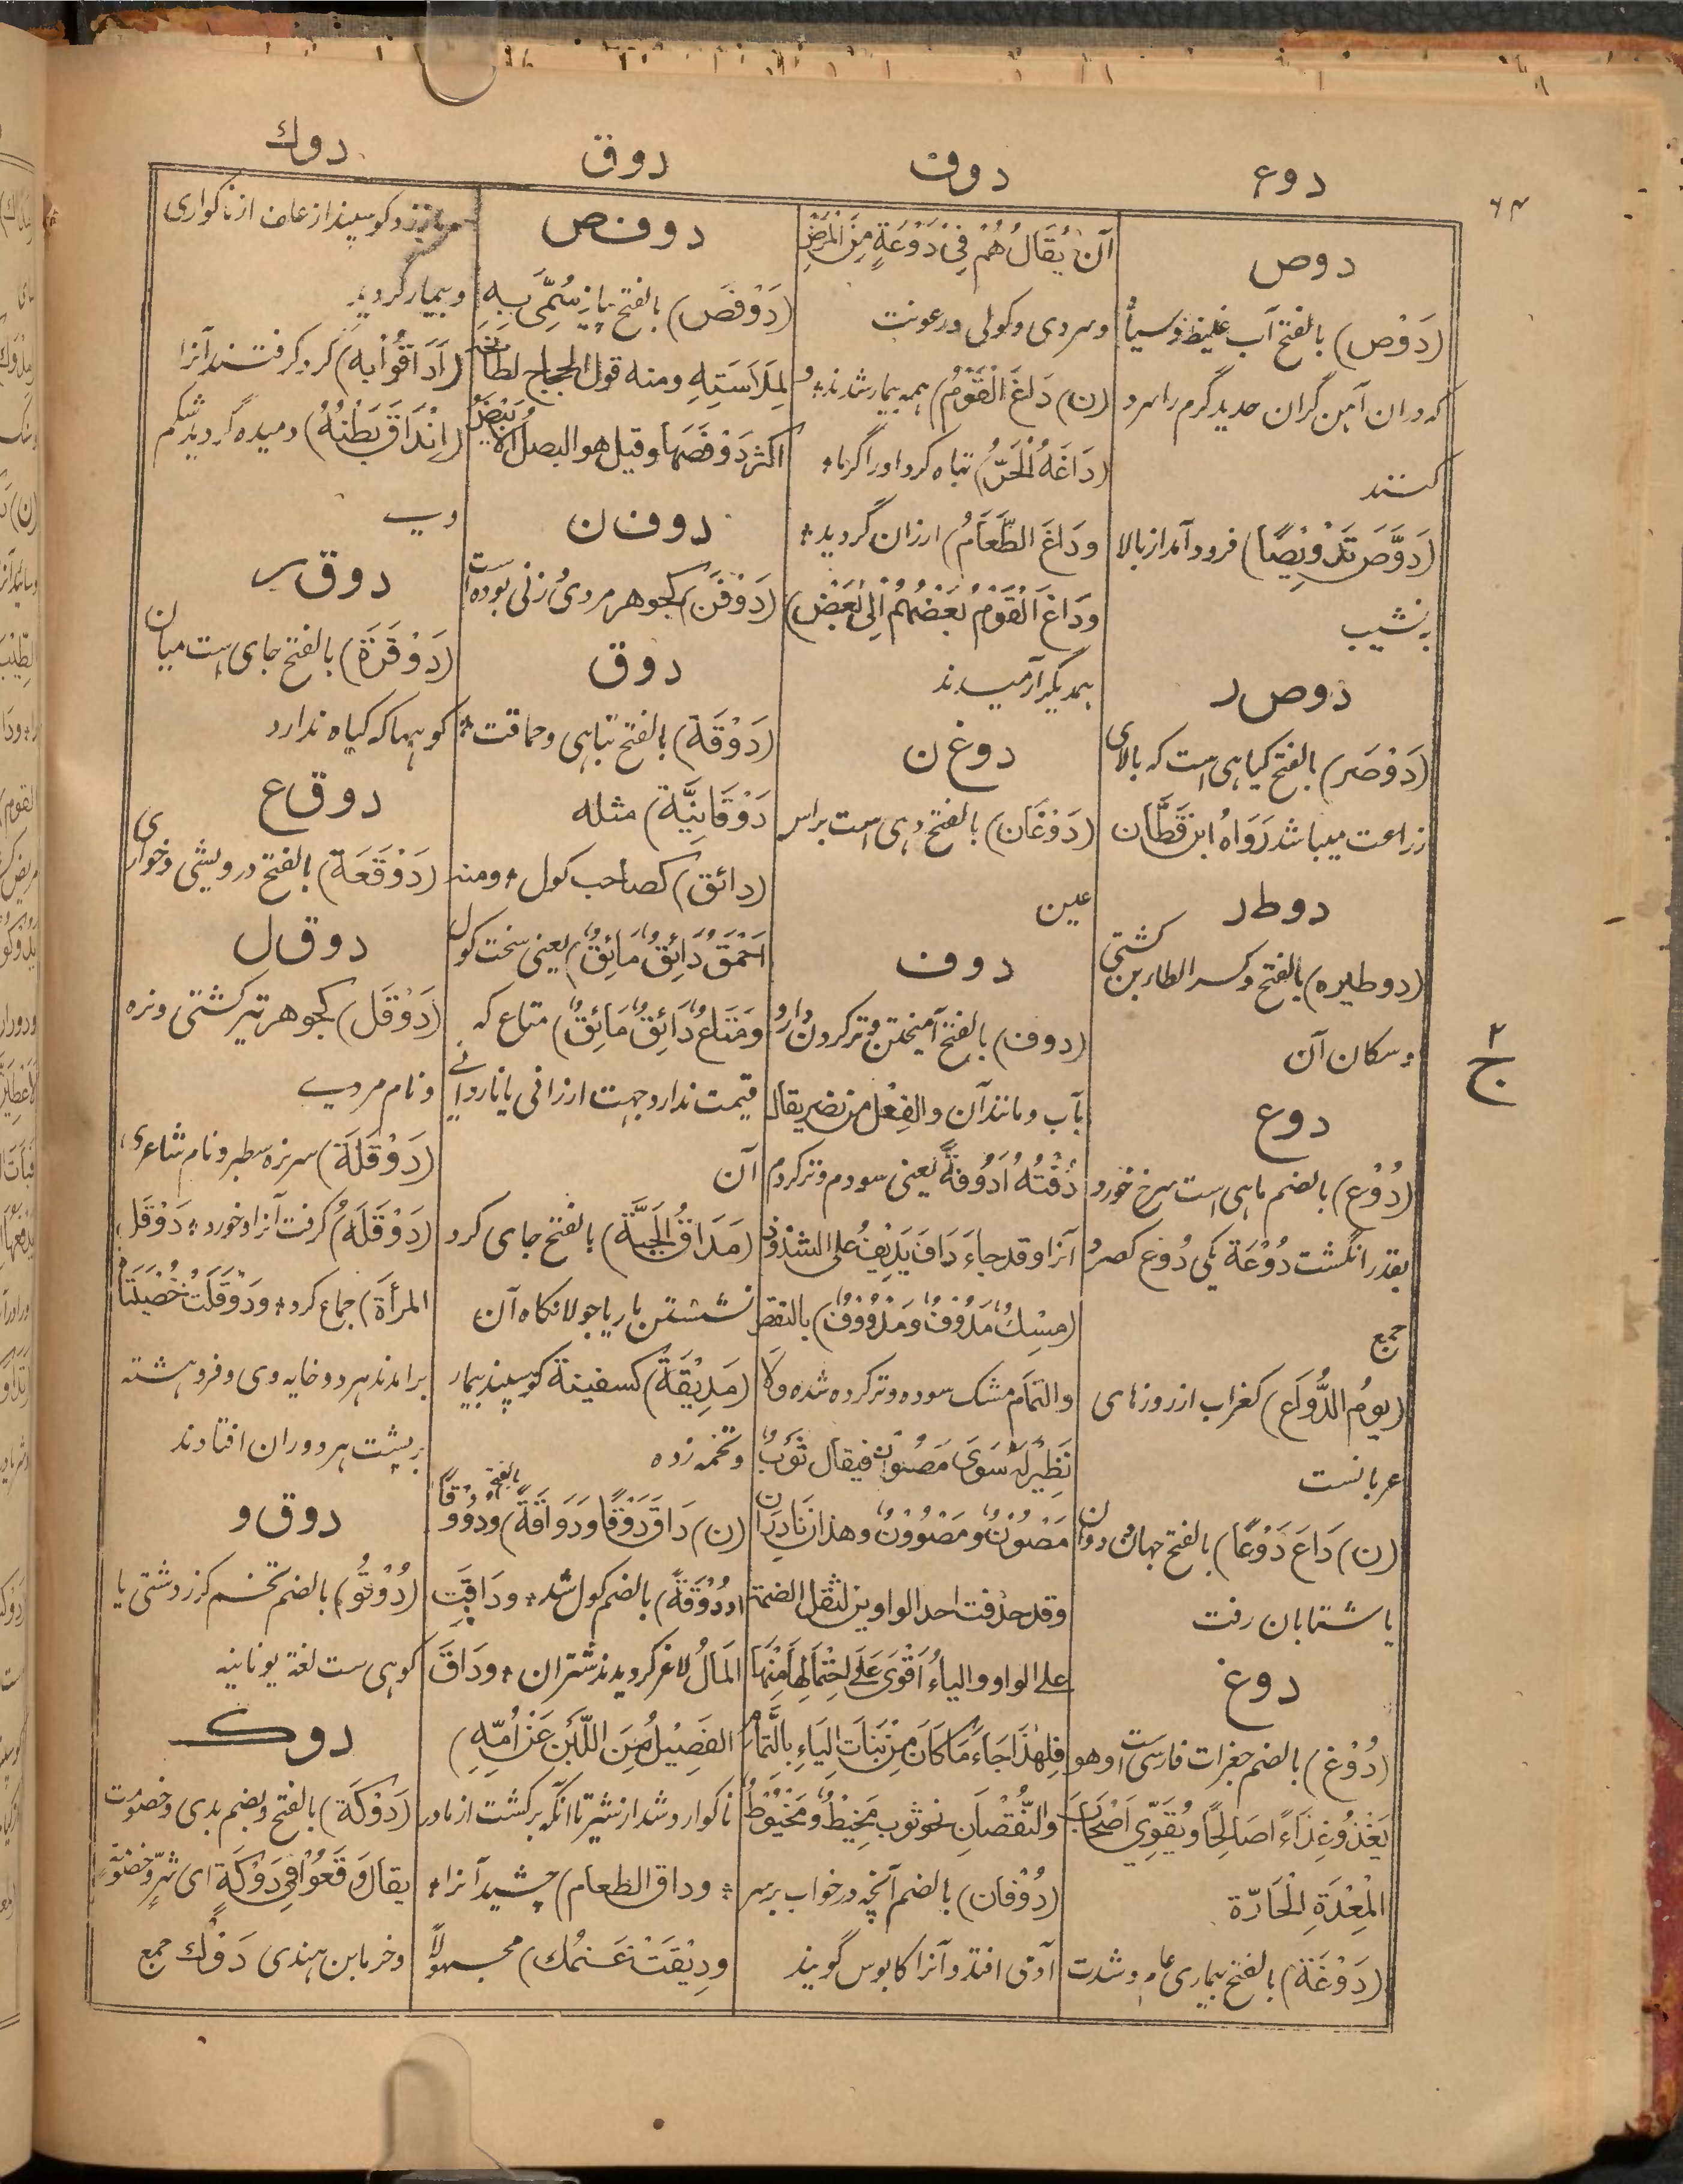 ۶۴
دوع
دوف
دوق
دوك
دوص
(دَوْص) بالفتح آب غلیظ وسیاه
که دران آهن گران حدید گرم را سرد
کنند
(دَوَّصَ تَدْوِیْصًا) فرود آمد از بالا
به نشیب
دوص ر
(دَوْصَر) بالفتح گیاهی است که بالای
زراعت میباشد رَوَاهُ ابن قَطَّان
دوط ر
(دوطیره) بالفتح وکسر الطاء بن کشتی
و سکان آن
دوع
(دُوْع) بالضم ماهی است سرخ خورد
بقدر انگشت دُوْعَة یکی دُوَع کصرد
جمع
(یومُ الدُّوَاع) کغراب از روزهای
عربانست
(ن) (دَاعَ دَوْعًا) بالفتح جهان و دوان
یا شتابان رفت
دوغ
(دُوْغ) بالضم جغرات فارسی است وهو
یَغْذُو غِذَاءً صَالِحًا ویُقَوِّی اَصْحَابَ
الْمِعْدَةِ الْحَارَّة
(دَوْغَة) بالفتح بیماری عام و شدت
آن یُقَالُ هُمْ فِیْ دَوْغَةٍ مِنَ الْمَرَضِ
وسردی وکولی ورعونت
(ن) (دَاغَ الْقَوْمُ) همه بیمار شدند* و
(دَاغَهُ الْحَرُّ) تباه کرد او را گرما*
ودَاغَ الطَّعَامُ) ارزان گردید*
ودَاغَ الْقَوْمُ بَعْضُهُمْ اِلٰی بَعْضٍ)
بهمدیگر آرمیدند
دوغ ن
(دَوْغَان) بالفتح دهی است براس
عین
دوف
(دوف) بالفتح آمیختن وترکردن دارو
بآب ومانند آن والفِعْل من نصر یقال
دُفْتُهُ اَدُوْفُهٗ یعنی سودم وترکردم
آنرا وقد جاءَ دَافَ یَدِیْفُ علی الشذوذ
(مِسْكٌ مَدُوْفٌ ومَدْوُوْفٌ) بالنقص
والتمام مشک سوده وتر کرده شده ولا
نَظِیْرَ لَهٗ سِوَی مَصُوْنٍ فیقال ثَوْبٌ
مَصُوْنٌ ومَصْوُوْنٌ وهذان نَادِرَان
وقد حذفت احد الواوین لثقل الضمة
علی الواو والیاءُ اَقْوَی عَلَی احْتِمَالِهَا مِنْهَا
فلِهٰذَا جَاءَ مَا کَانَ مِنْ بَنَاتِ الیَاءِ بِالتَّمَامِ
والنُّقْصَانِ نحو ثوب مَخِیْطٌ ومَخْیُوْطٌ
(دُوْفَان) بالضم آنچه در خواب بر سر
آدمی افتد وآنرا کابوس گویند
دوف ص
(دَوْفَص) بالفتح پیاز سُمِّیَ بِهٖ
لِمَلَاسَتِهٖ ومنه قول الحجاج لطبّاخه
اکثر دَوْفَصَهَا وقیل هو البصل الاَبْیَضُ
دوف ن
(دَوْفَن) کجوهر مردی زنی بوده است
دوق
(دَوْقَة) بالفتح تباهی وحماقت*
دَوْقَانِیَّة) مثله
(دائق) کصاحب کول* ومنه
اَحْمَقُ دَائِقٌ مَائِقٌ) یعنی سخت کول
ومَتَاعٌ دَائِقٌ مَائِقٌ) متاع که
قیمت ندارد جهت ارزانی یا ناروائی
آن
(مَدَاقُ الْحَیَّة) بالفتح جای گرد
نشستن مار یا جولانگاه آن
(مَدِیْقَة) کسفینة گوسپند بیمار
وتخمه زده
(ن) (دَاقَ دَوْقًا ودَوَاقَةً) بالفتح ودُوْوْقًا
ودُوْوْقَةً) بالضم کول شد* ودَاقَتِ
الْمَالُ لاغر گردیدند شتران* ودَاقَ
الفَصِیْلُ مِنَ اللَّبَنِ عَنْ اُمِّهٖ)
ناگوارد شد از شیر تا آنکه برگشت از مادر
* وداق الطعام) چشید آنرا*
ودِیْقَتْ غَنَمُك) مجهولاً
وبیمار گردید
(اَدَاقُوْا بِه) گرد گرفتند آنرا
(اِنْدَاقَ بَطْنُهٗ) دمیده گردید شکم
وی
دوق ر
(دَوْقَرَة) بالفتح جای است میان
کوهها که گیاه ندارد
دوق ع
(دَوْقَعَة) بالفتح درویشی وخواری
دوق ل
(دَوْقَل) کجوهر تیر کشتی ونره
ونام مردی
(دَوْقَلَة) سرنره سطبر ونام شاعری*
(دَوْقَلَهُ) گرفت آنرا وخورد* دَوْقَلَ
المرأة) جماع کرد* ودَوْقَلَتْ خُصْیَتَا
برآمدند هر دو خایه وی وفروهشته
بر پشت هر دو ران افتادند
دوق و
(دُوْقُو) بالضم تخم گزر دشتی یا
کوهی ست لغة یونانیه
دوك
(دَوْكَة) بالفتح ویضم بدی وخصومت
یقال وَقَعُوْا فِی دَوْكَةٍ ای شرٍّ وخصومة
وخر ما بن هندی دَوْك جمع
۲
ج